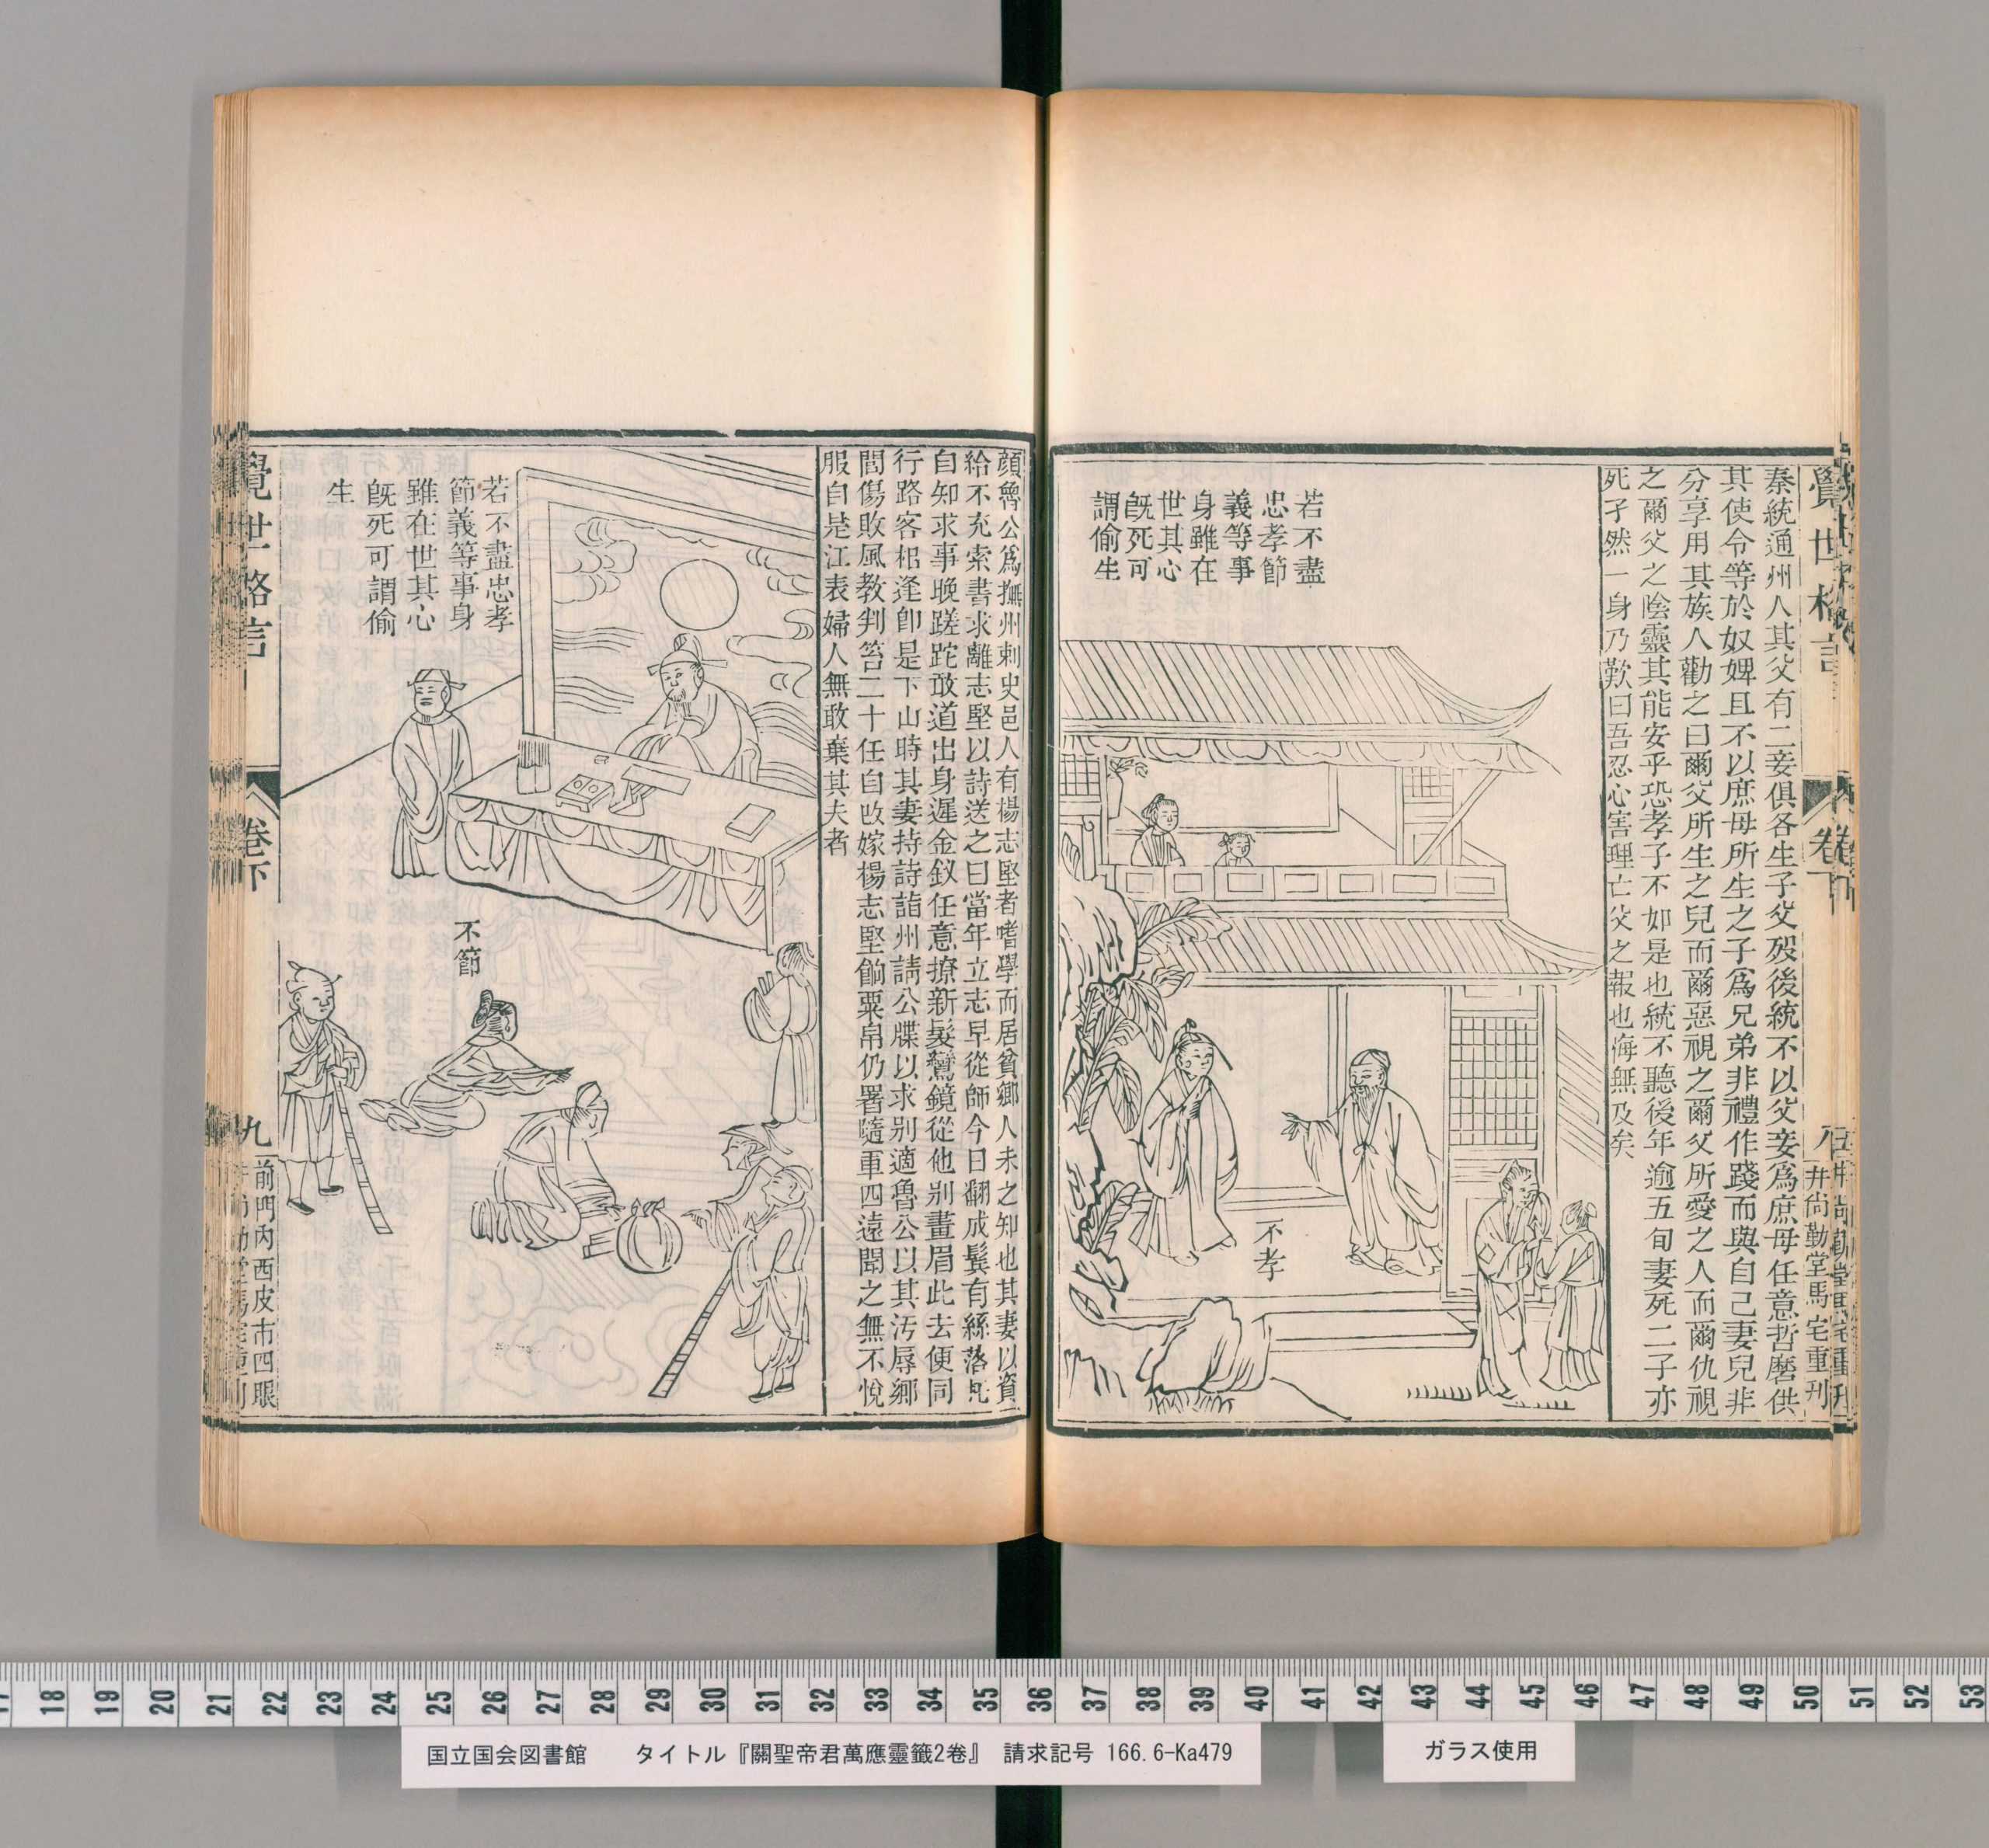 覺世格言
卷下
八
井尚勤堂馬宅重刋
秦統通州人其父有二妾俱各生子父歿後統不以父妾爲庶母任意哲磨供
其使令等於奴婢且不以庶母所生之子爲兄弟非禮作踐而與自己妻兒非
分享用其族人勸之曰爾父所生之兒而爾惡視之爾父所愛之人而爾仇視
之爾父之陰靈其能安乎恐孝子不如是也統不聽後年逾五旬妻死二子亦
死孑然一身乃歎曰吾忍心害理亡父之報也悔無及矣
若不盡
忠孝節
義等事
身雖在
世其心
旣死可
謂偷生
不孝
顔魯公爲撫州刺史邑人有楊志堅者嗜學而居貧鄉人未之知也其妻以資
給不充索書求離志堅以詩送之曰當年立志早從師今日翻成鬓有絲落
自知求事晚蹉跎敢道出身遲金釵任意撩新髮鸞鏡從他别畫眉此去便同
行路客相逢卽是下山時其妻持詩詣州請公牒以求别適魯公以其汚辱鄉
閭傷敗風教判笞二十任自改嫁楊志堅餉粟帛仍署隨軍四遠聞之無不悅
服自是江表婦人無敢棄其夫者
若不盡忠孝
節義等事身
雖在世其心
旣死可謂偷
生
不節
覺世格言
卷下
九
前門内西皮市四眼
国立国会図書館 タイトル『關聖帝君萬應靈籤2卷』 請求記号 166.6-Ka479
ガラス使用
17 18 19 20 21 22 23 24 25 26 27 28 29 30 31 32 33 34 35 36 37 38 39 40 41 42 43 44 45 46 47 48 49 50 51 52 53